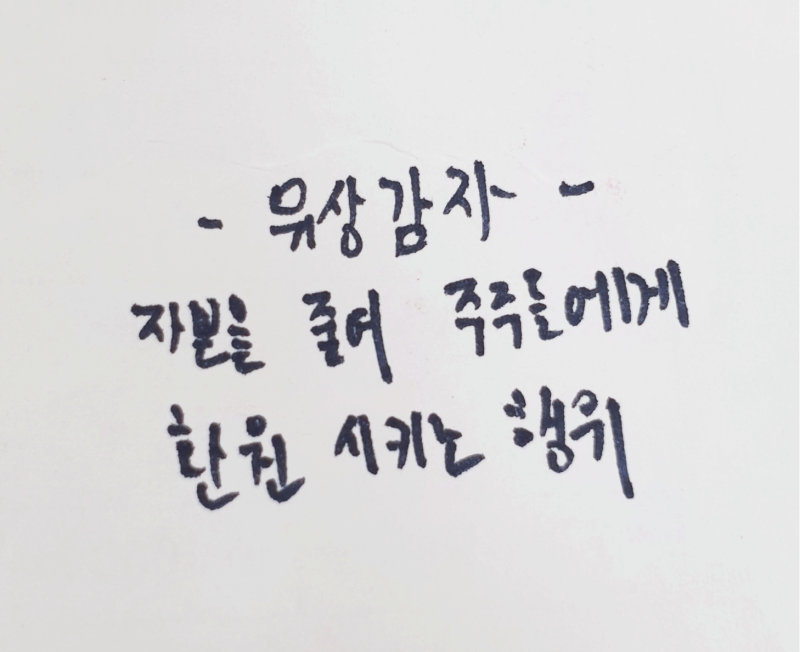 - 유상감자 -
자본을 줄여 주주들에게
환원 시키는 행위